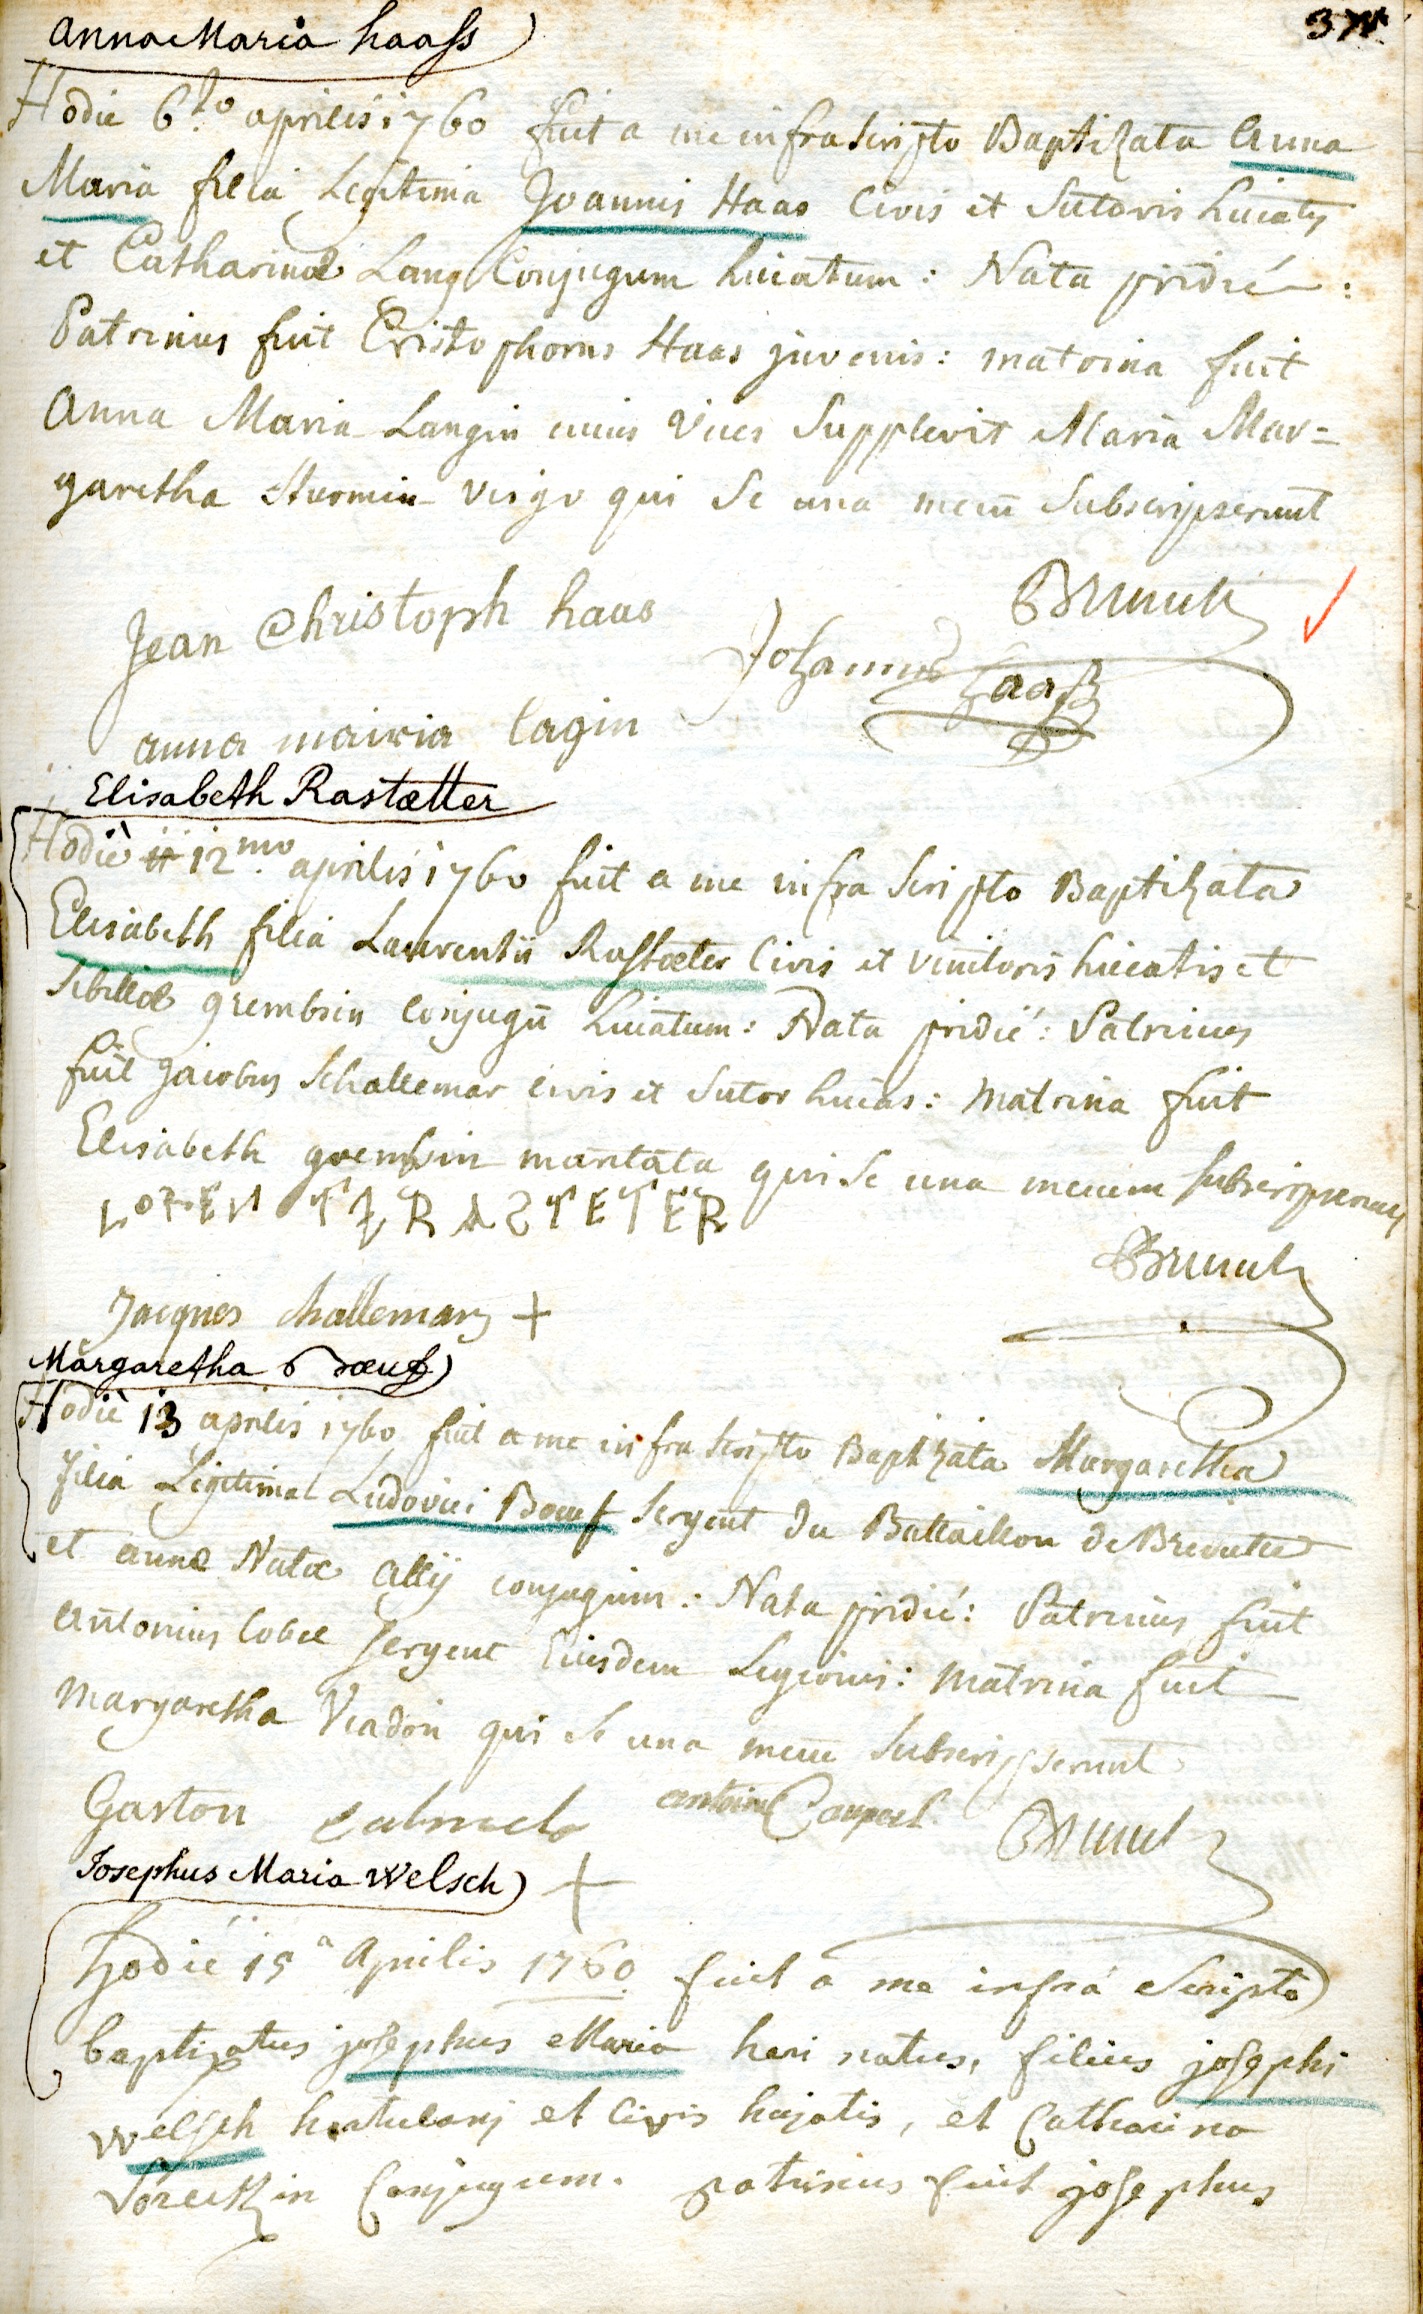 Anna Maria haass
Hodie 6to aprilis 1760 fuit a me infra scripto Baptizata Anna
Maria filia Legitima Joannis Haas Civis et Sutoris huiatis
et Catharinæ Lang Conjugum huiatum: Nata pridié:
Patrinus fuit Cristophorus Haas juvenis: matrina fuit
Anna Maria Langin cuius Vices Supplevit Maria Mar=
garetha Sturmin virgo qui Se una mecū Subscripserunt
Brunck
Jean Christoph haas
Johannes Haaß
anna mairia lagin
Elisabeth Rastætter
Hodiè 12mo aprilis 1760 fuit a me infra Scripto Baptizata
Elisabeth filia Laurentii Rastæter Civis et vinitoris huiatis et
Sibillæ grembsin Conjugū huiatum: Nata pridié: Patrinus
fuit Jacobus Schallemar civis et Sutor huias: Matrina fuit
Elisabeth grembsin maritata qui Se una mecum subscripserunt
Brunck
Jacques challemar +
Margaretha Bœuf
Hodiè 13 aprilis 1760 fuit a me infra Scripto Baptizata Margaretha
filia Legitima Ludovici Boeuf Sergent du Battaillon de
et annæ Natæ conjugum: Nata pridié: Patrinus fuit
Antonius Sergent Eiusdem Legionis: Matrina fuit
Margaretha qui Se una mecū Subscripserunt
Gaston
antoine
Brunck
Josephus Maria Welsch
+
Hodié 15a Aprilis 1760 fuit a me infrá Scripto
baptizatus josephus Maria heri natus, filius josephi
Welsch hortulanj et Civis hujatis, et Catharina
Conjugum. patrinus fuit josephus